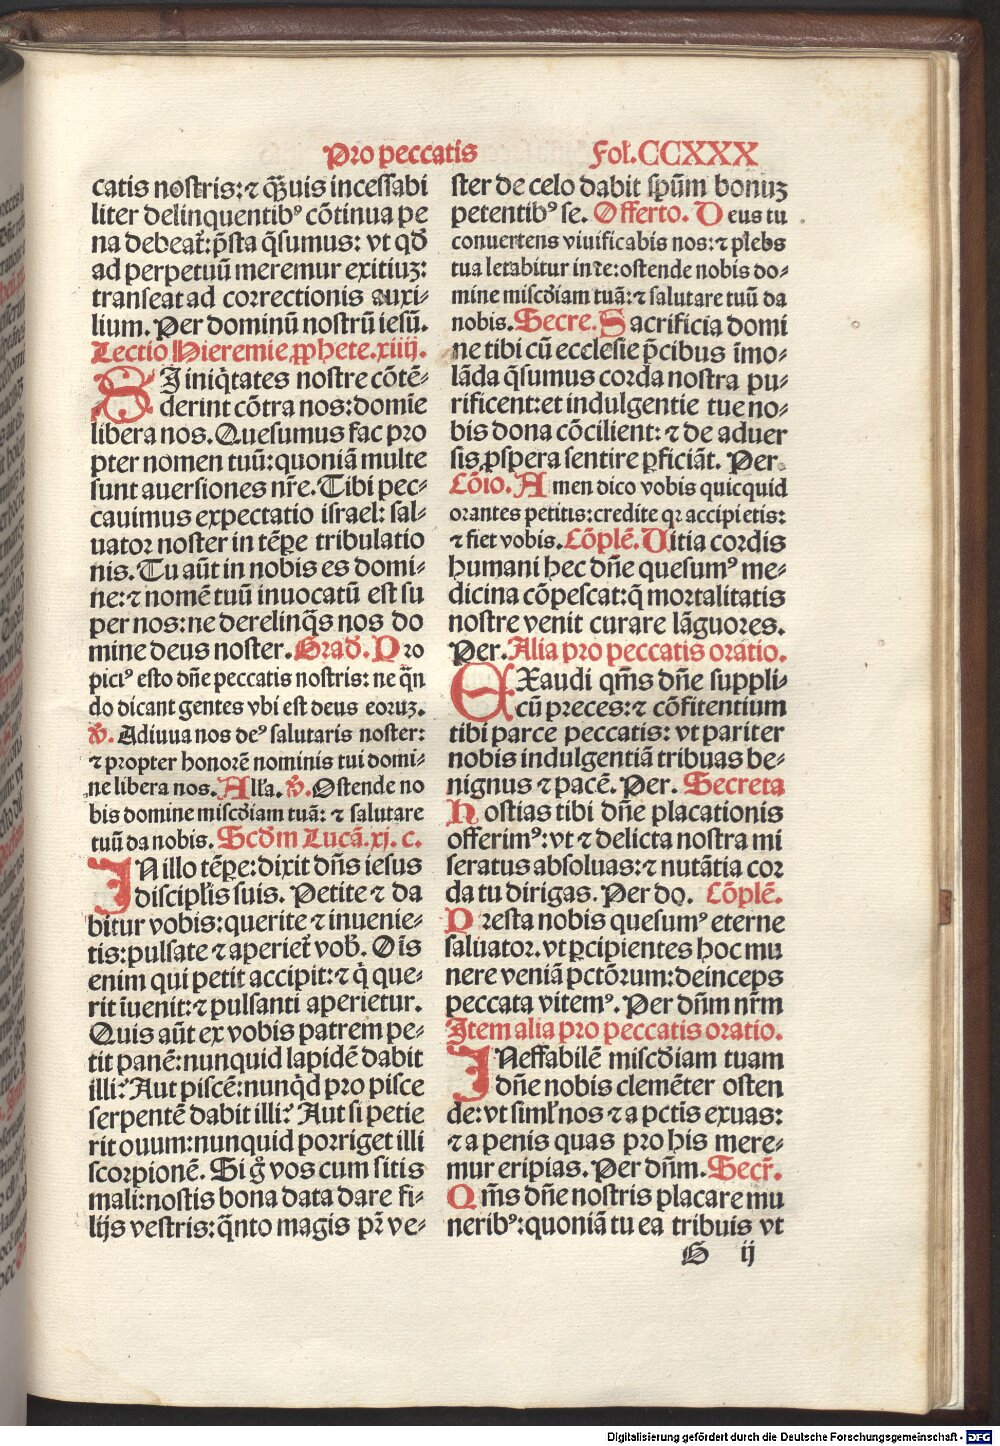 Pro peccatis Fol.CCXXX
catis nostris:⁊ q̃ꝫuis incessabi
liter delinquentibꝰ cõtinua pe
na debeat᷑:p̃sta q̃sumus: vt qđ
ad perpetuũ meremur exitiuꝫ:
transeat ad correctionis auxi⸗
lium. Per dominũ nostrũ iesũ.
Lectio Hieremie ꝓphete.xiiij.
SI iniq̇tates nostre cõtẽ⸗
derint cõtra nos:domĩe
libera nos. Quesumus fac pro
pter nomen tuũ:quoniã multe
sunt auersiones nr̃e. Tibi pec⸗
cauimus expectatio israel: sal⸗
uator noster in tẽpe tribulatio
nis. Tu aũt in nobis es domi⸗
ne:⁊ nomẽ tuũ inuocatũ est su
per nos:ne derelinq̃s nos do
mine deus noster. Građ. Pro
piciꝰ esto dñe peccatis nostris: ne q̃n
do dicant gentes vbi est deus eoruꝫ.
v̇. Adiuua nos deꝰ salutaris noster:
⁊ propter honorẽ nominis tui domi⸗
ne libera nos. Alľa. v̇. Ostende no
bis domine miscđiam tuã: ⁊ salutare
tuũ da nobis. Scđm Lucã.xj. c.
IN illo tẽpe:dixit dñs iesus
discipľis suis. Petite ⁊ da
bitur vobis:querite ⁊ inuenie⸗
tis:pulsate ⁊ aperiet᷑ vob̃. Oĩs
enim qui petit accipit:⁊ q̇ que⸗
rit ĩuenit:⁊ pulsanti aperietur.
Quis aũt ex vobis patrem pe⸗
tit panẽ:nunquid lapidẽ dabit
illi? Aut piscẽ:nunq̇d pro pisce
serpentẽ dabit illi? Aut si petie
rit ouum:nunquid porriget illi
scorpionẽ. Si g̊ vos cum sitis
mali:nostis bona data dare fi⸗
lijs vestris:q̃nto magis pr̃ ve⸗
ster de celo dabit sp̃um bonuꝫ
petentibꝰ se. Offerto. Deus tu
conuertens viuificabis nos:⁊ plebs
tua letabitur in te:ostende nobis do⸗
mine miscđiam tuã:⁊ salutare tuũ da
nobis. Secre. Sacrificia domi
ne tibi cũ ecclesie p̃cibus ĩmo⸗
lãda q̃sumus corda nostra pu⸗
rificent:et indulgentie tue no⸗
bis dona cõcilient: ⁊ de aduer
sis ꝓspera sentire ꝑficiãt. Per.
Cõio. Amen dico vobis quicquid
orantes petitis:credite qꝛ accipietis:
⁊ fiet vobis. Cõplẽ. Uitia cordis
humani hec dñe quesumꝰ me⸗
dicina cõpescat:q̃ mortalitatis
nostre venit curare lãguores.
Per. Alia pro peccatis oratio.
EXaudi q̃ms dñe suppli⸗
cũ preces:⁊ cõfitentium
tibi parce peccatis: vt pariter
nobis indulgentiã tribuas be⸗
nignus ⁊ pacẽ. Per. Secreta
Hostias tibi dñe placationis
offerimꝰ:vt ⁊ delicta nostra mi
seratus absoluas:⁊ nutãtia cor
da tu dirigas. Per do. Cõplẽ.
Presta nobis quesumꝰ eterne
saluator. vt ꝑcipientes hoc mu
nere veniã pctõrum:deinceps
peccata vitemꝰ. Per dñm nr̃m
Item alia pro peccatis oratio.
INeffabilẽ miscđiam tuam
dñe nobis clemẽter osten
de:vt simľ nos ⁊ a pctĩs exuas:
⁊ a penis quas pro his mere⸗
mur eripias. Per dñm. Secr̃.
Qm̃s dñe nostris placare mu
neribꝰ:quoniã tu ea tribuis vt
G ij
Digitalisierung gefördert durch die Deutsche Forschungsgemeinschaft - DFG